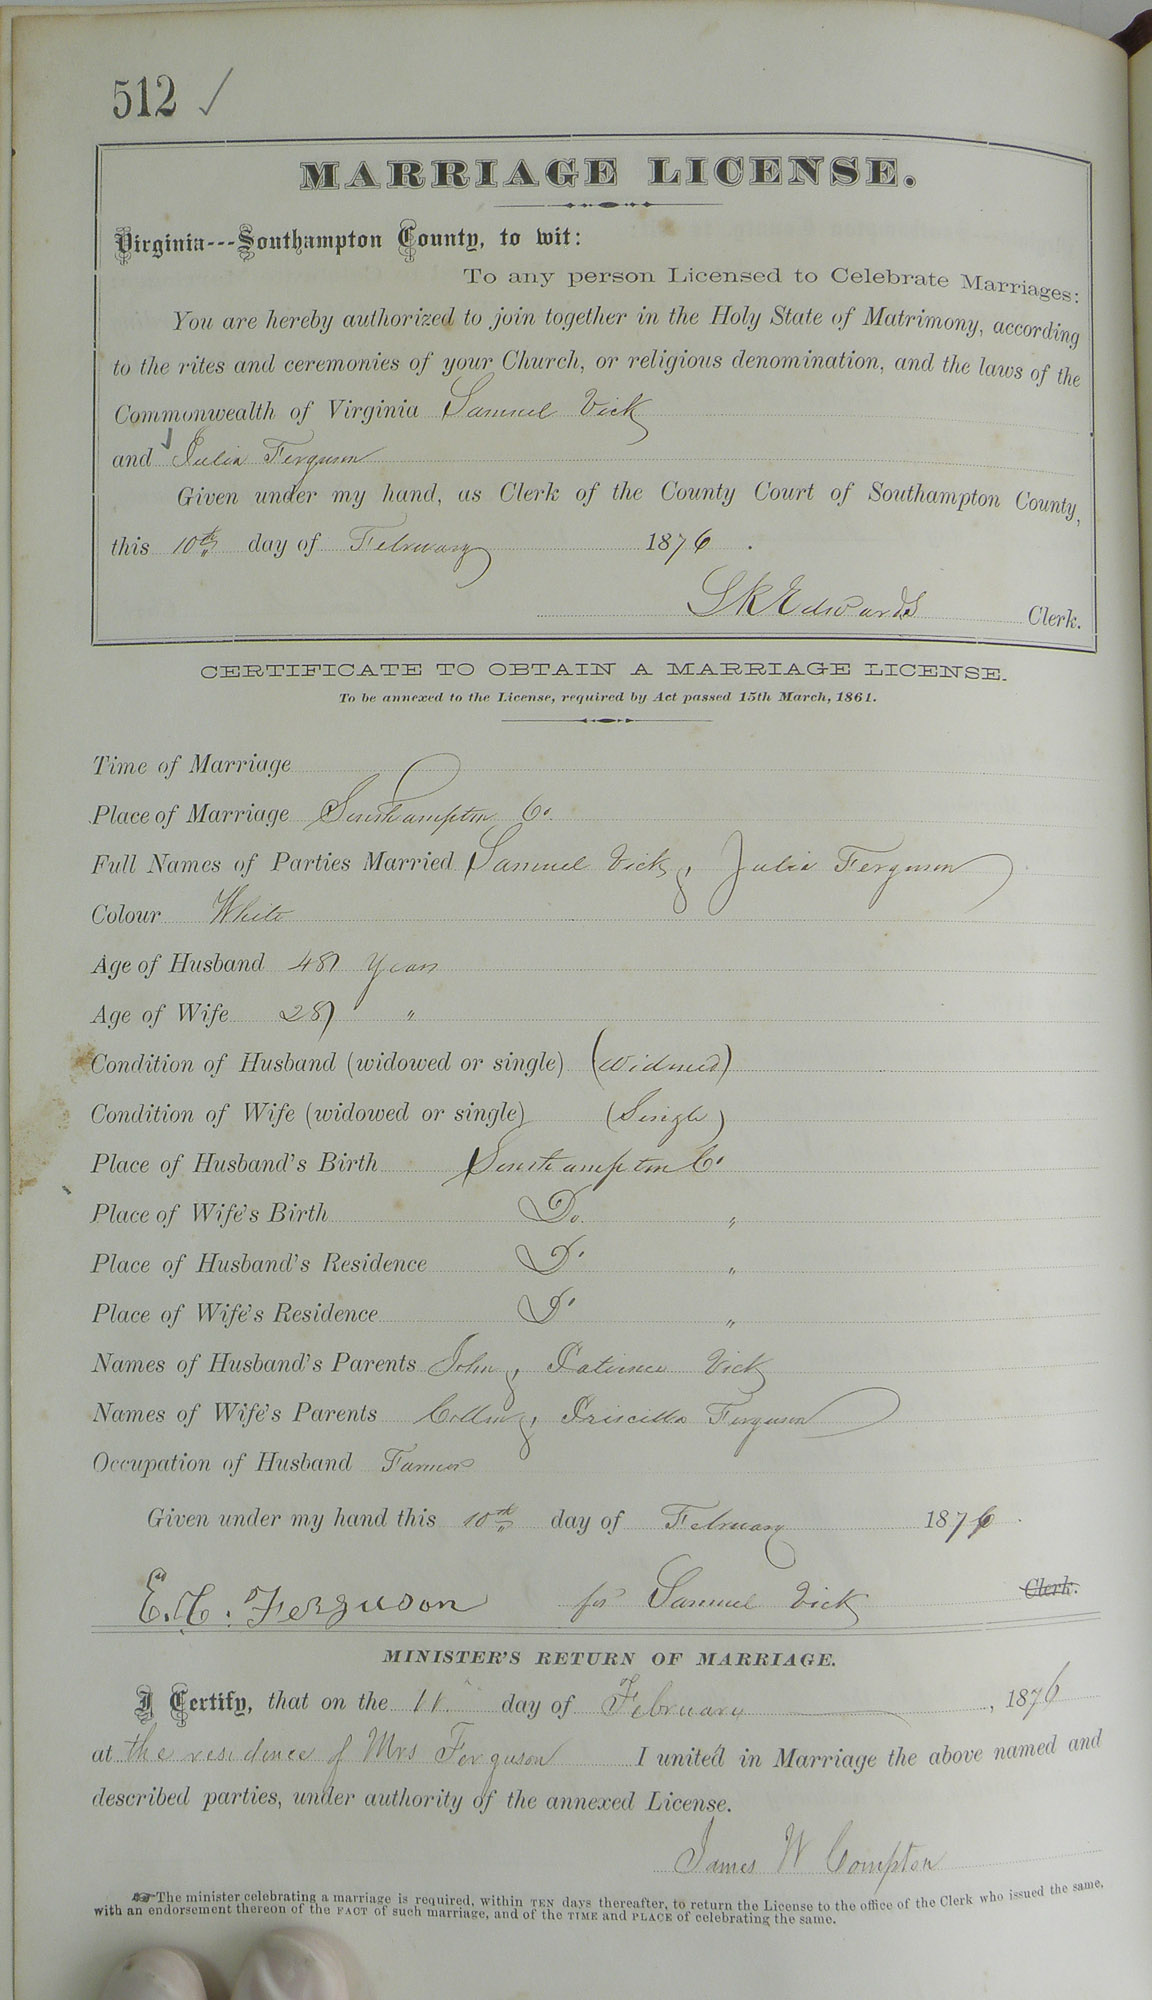 512 ✓
MARRIAGE LICENSE.
Virginia---Southampton County, to wit:
To any person Licensed to Celebrate Marriages:
You are hereby authorized to join together in the Holy State of Matrimony, according
to the rites and ceremonies of your Church, or religious denomination, and the laws of the
Commonwealth of Virginia Samuel Vick
and Julia Ferguson
Given under my hand, as Clerk of the County Court of Southampton County,
this 10th day of February 1876.
Clerk.
CERTIFICATE TO OBTAIN A MARRIAGE LICENSE.
To be annexed to the License, required by Act passed 15th March, 1861.
Time of Marriage
Place of Marriage Southampton Co.
Full Names of Parties Married Samuel Vick & Julia Ferguson
Colour White
Age of Husband 48 Years
Age of Wife 28 "
Condition of Husband (widowed or single) (Widowed)
Condition of Wife (widowed or single) (Single)
Place of Husband's Birth Southampton Co
Place of Wife's Birth Do. "
Place of Husband's Residence Do "
Place of Wife's Residence Do "
Names of Husband's Parents John & Patience Vick
Names of Wife's Parents & Priscilla Ferguson
Occupation of Husband Farmer
Given under my hand this 10th day of February 1876.
Ferguson for Samuel Vick Clerk.
MINISTER'S RETURN OF MARRIAGE.
I Certify, that on the 11 day of February, 1876
at the residence of Mrs Ferguson I united in Marriage the above named and
described parties, under authority of the annexed License.
James W Compton
☞The minister celebrating a marriage is required, within TEN days thereafter, to return the License to the office of the Clerk who issued the same,
with an endorsement thereon of the FACT of such marriage, and of the TIME and PLACE of celebrating the same.